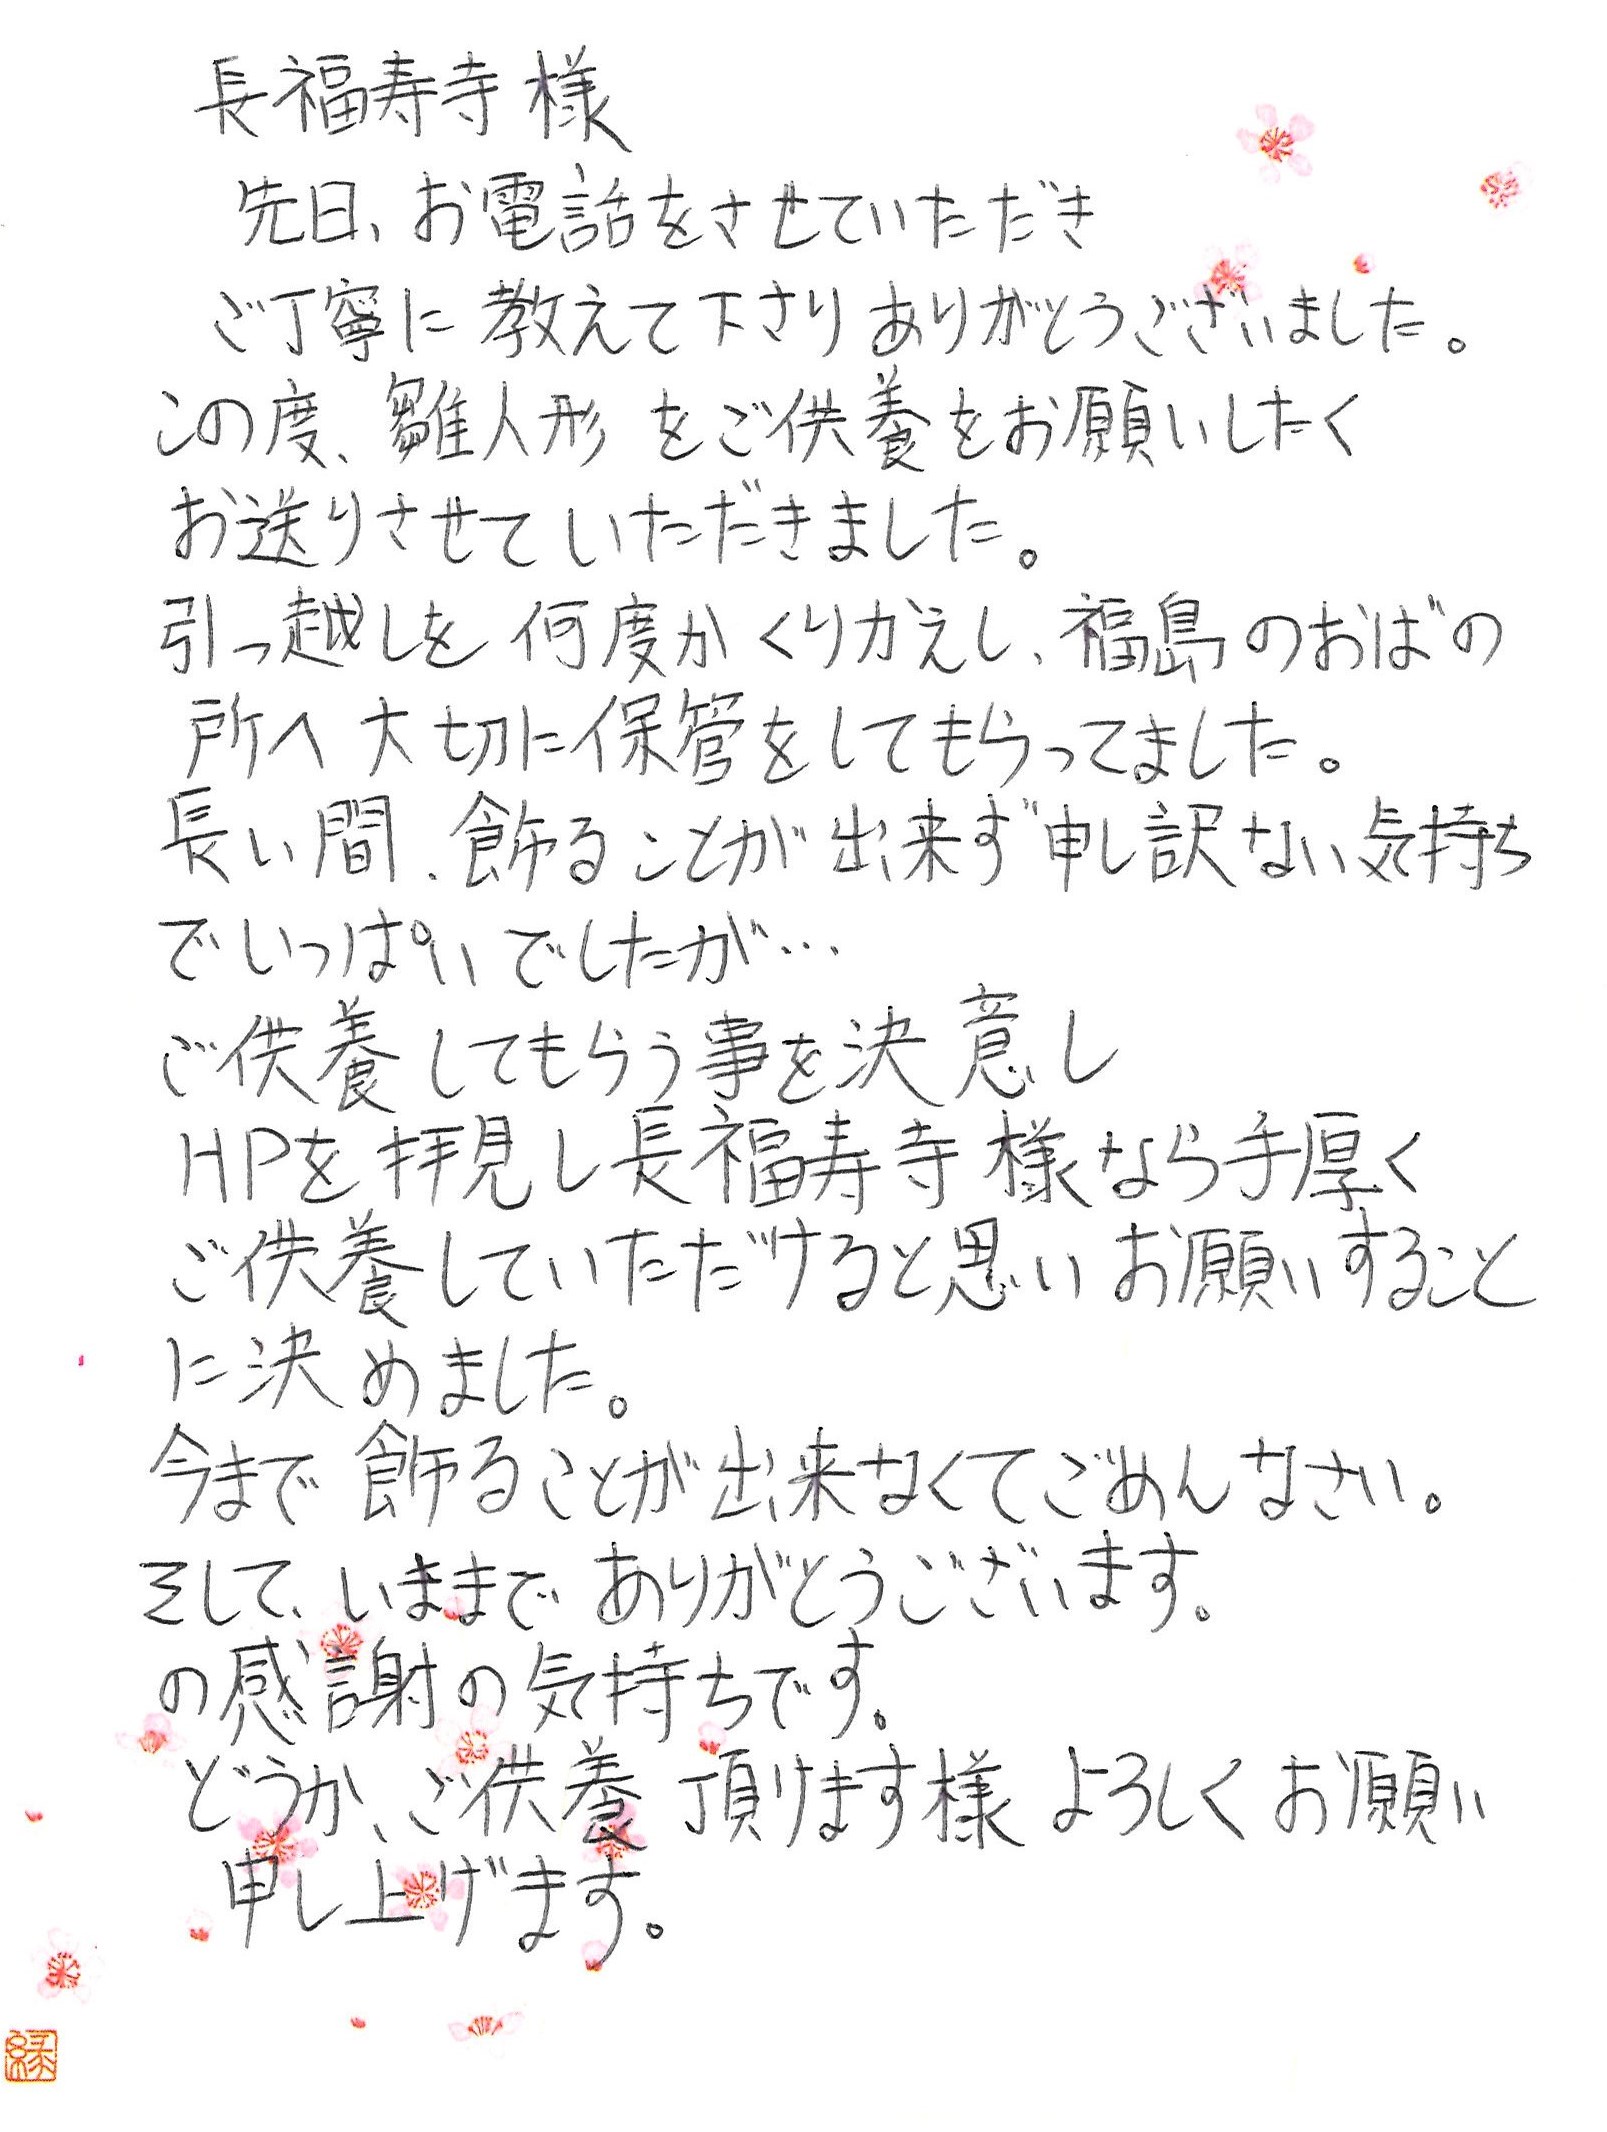 長福寿寺 様
先日、お電話をさせていただき
ご丁寧に 教えて下さり ありがとうございました。
この度、雛人形 をご供養をお願いしたく
お送りさせていただきました。
引っ越しを 何度か くりかえし、福島のおばの
所へ 大切に保管をしてもらってました。
長い間、飾ることが出来ず申し訳ない気持ち
でいっぱいでしたが…
ご供養してもらう事を決意し
HPを拝見し長福寿寺 様なら手厚く
ご供養していただけると思いお願いすること
に決めました。
今まで 飾ることが出来なくてごめんなさい。
そして、いままで ありがとうございます。
の感謝の気持ちです。
どうか、ご供養 頂けます様 よろしく お願い
申し上げます。
縁